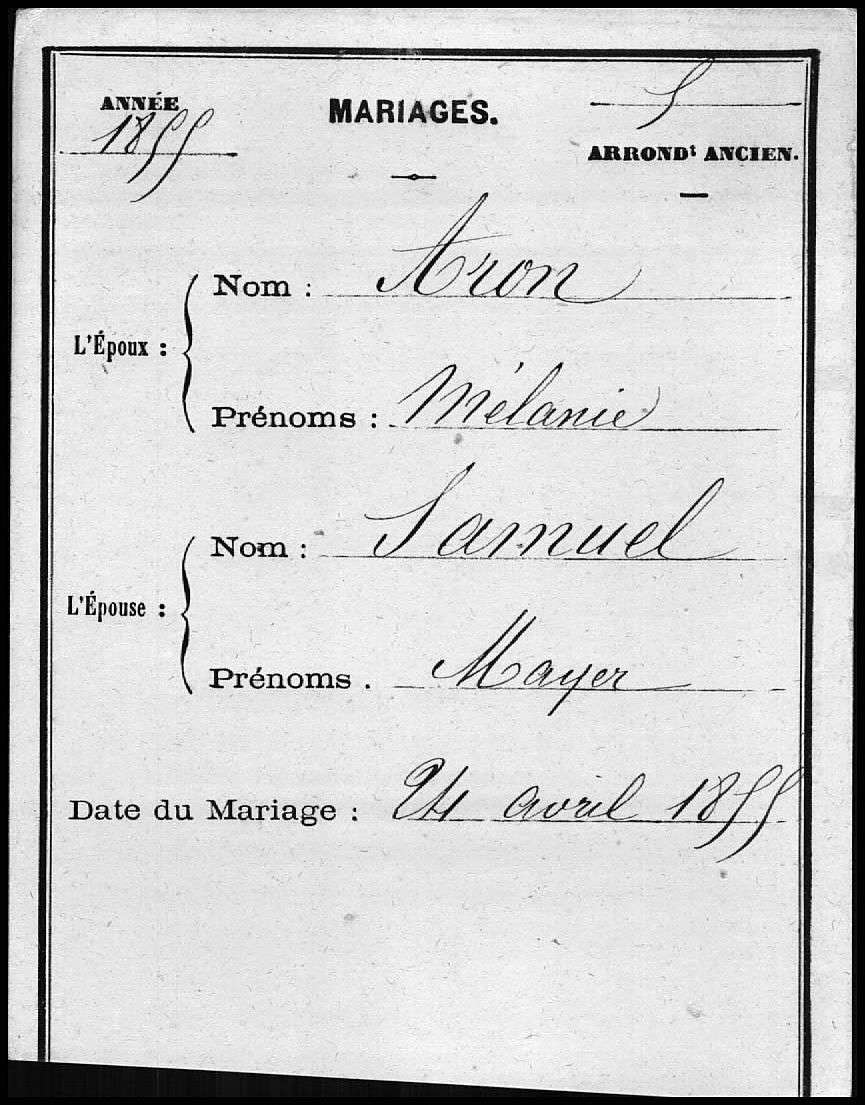 ANNÉE
1855
MARIAGES.
5
ARRONDt ANCIEN.
L'Époux :
Nom : Aron
Prénoms : Mélanie
L'Épouse :
Nom : Samuel
Prénoms . Mayer
Date du Mariage : 24 avril 1855